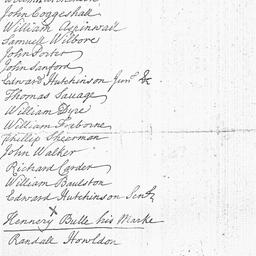 John Coggeshall
William Aspinwall
Samuell Wilbore
John Porter
John Sanford
Edward Hutchinson Junr. &
Thomas Savage
William Dyre
William Freborne
Phillip Sheerman
John Walker
Richard Carder
William Baulston
Edward Hutchinson Senr.
X
Hennery Bulle his Marke
Randall Howldon